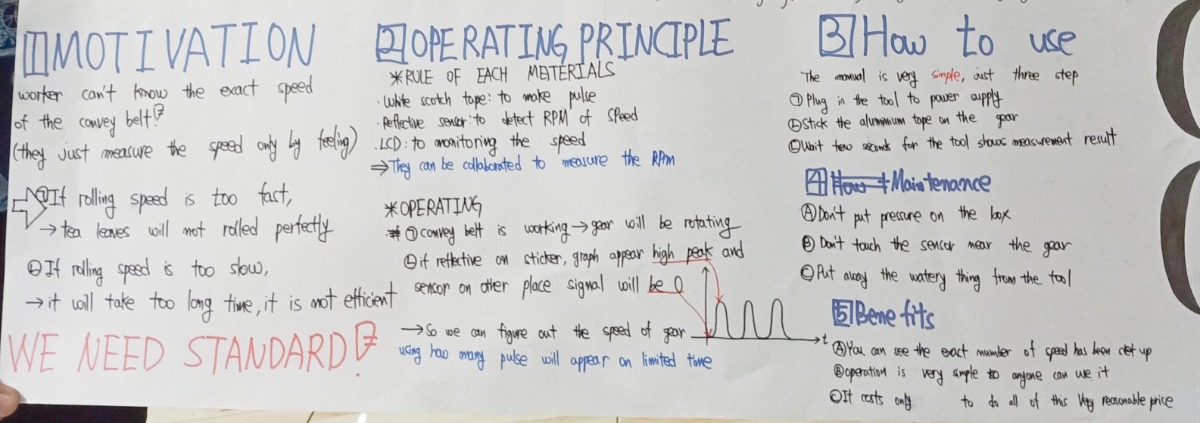 1 MOTIVATION
worker can't know the exact speed
of the convey belt!
(they just measure the speed only by feeling)
⇨ ①If rolling speed is too fast,
→ tea leaves will not rolled perfectly
②If rolling speed is too slow,
→ it will take too long time, it is not efficient
WE NEED STANDARD!
2 OPERATING PRINCIPLE
*RULE OF EACH MATERIALS
·White scotch tape: to make pulse
·Reflective sensor: to detect RPM of speed
·LCD: to monitoring the speed
⇒ They can be collaborated to measure the RPM
*OPERATING
① convey belt is working → gear will be rotating
② if reflective on sticker, graph appear high peak and
sensor on other place signal will be 0
→ So we can figure out the speed of gear
using how many pulse will appear on limited time
t
3 How to use
The manual is very simple, Just three step
① Plug in the tool to power supply
② Stick the aluminium tape on the gear
③ Wait few seconds for the tool shows measurement result
4 How t Maintenance
Ⓐ Don't put pressure on the box
Ⓑ Don't touch the sensor near the gear
Ⓒ Put away the watery thing from the tool
5 Benefits
Ⓐ You can see the exact number of speed has been set up
Ⓑ operation is very simple so anyone can use it
Ⓒ It costs only to do all of this Very reasonable price